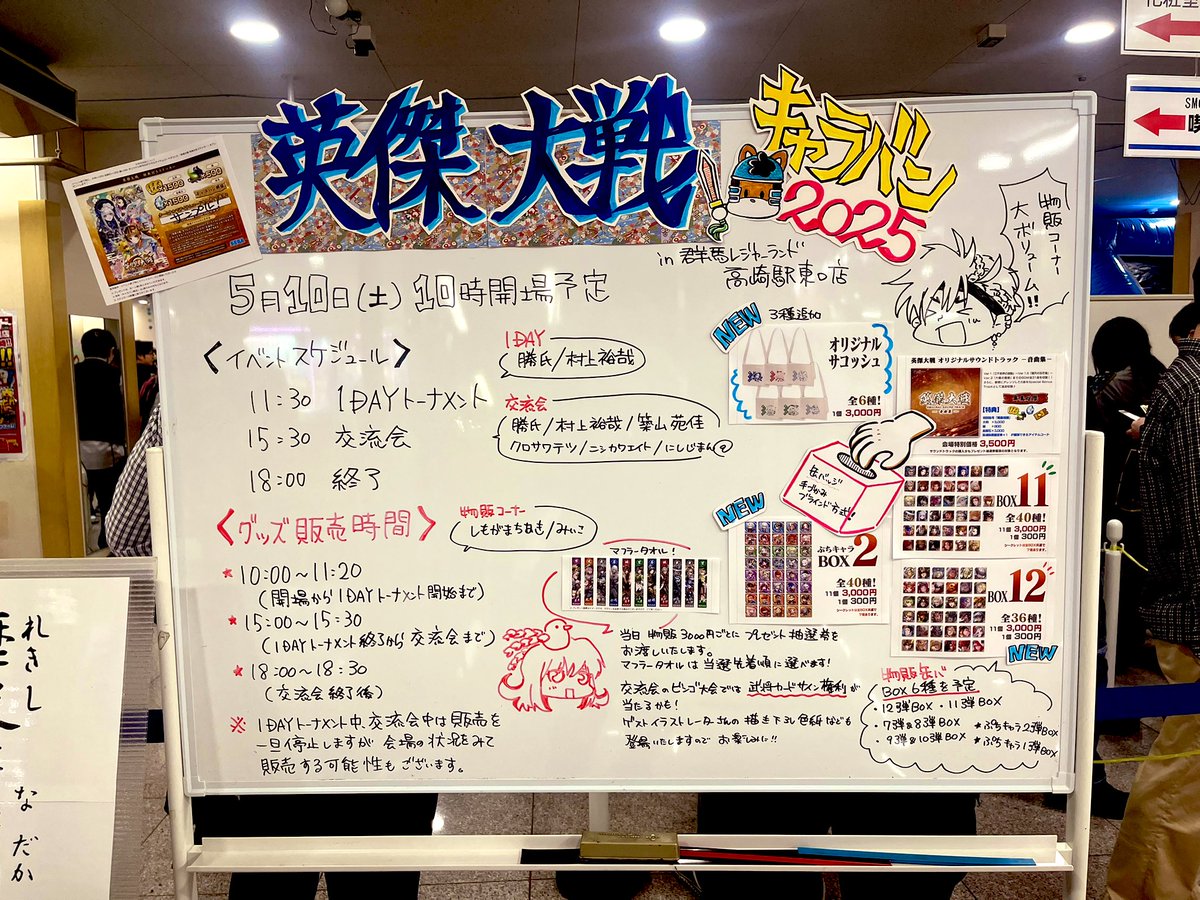 化粧室
英傑大戦
キャラバン
2025
in 群馬レジャーランド
高崎駅東口店
物販コーナー
大ボリューム!!
5月10日(土) 10時開場予定
<イベントスケジュール>
11:30 1DAYトーナメント
15:30 交流会
18:00 終了
1DAY
勝氏/村上裕哉
交流会
勝氏/村上裕哉/築山苑佳
クロサワテツ/ニシカワエイト/にしじまん②
<グッズ販売時間>
★10:00~11:20
(開場から1DAYトーナメント開始まで)
★15:00~15:30
(1DAYトーナメント終了から交流会まで)
★18:00~18:30
(交流会終了後)
※1DAYトーナメント中、交流会中は販売を
一旦停止しますが会場の状況をみて
販売する可能性もございます。
物販コーナー
しもがまちあき/みいこ
マフラータオル!
NEW 3種追加
オリジナル
サコッシュ
全6種!
1個 3,000円
英傑大戦 オリジナルサウンドトラック -音曲集-
【特典】
会場特別価格 3,500円
缶バッジ
手づかみ
ブラインド方式!
NEW
ぷちキャラ
BOX 2
全40種!
11個 3,000円
1個 300円
BOX 11
全40種!
11個 3,000円
1個 300円
BOX 12
全36種!
11個 3,000円
1個 300円
NEW
当日物販3000円ごとにプレゼント抽選券を
お渡しいたします。
マフラータオルは当選先着順に選べます!
交流会のビンゴ大会では武将カードサイン権利が
当たるかも!
ゲストイラストレーターさんの描き下ろし色紙なども
登場いたしますのでお楽しみに!!
物販缶バ
BOX6種を予定
・12弾BOX・11弾BOX
・7弾&8弾BOX ★ぷちキャラ2弾BOX
・9弾&10弾BOX ★ぷちキャラ1弾BOX
SEGA
れきし
なだか